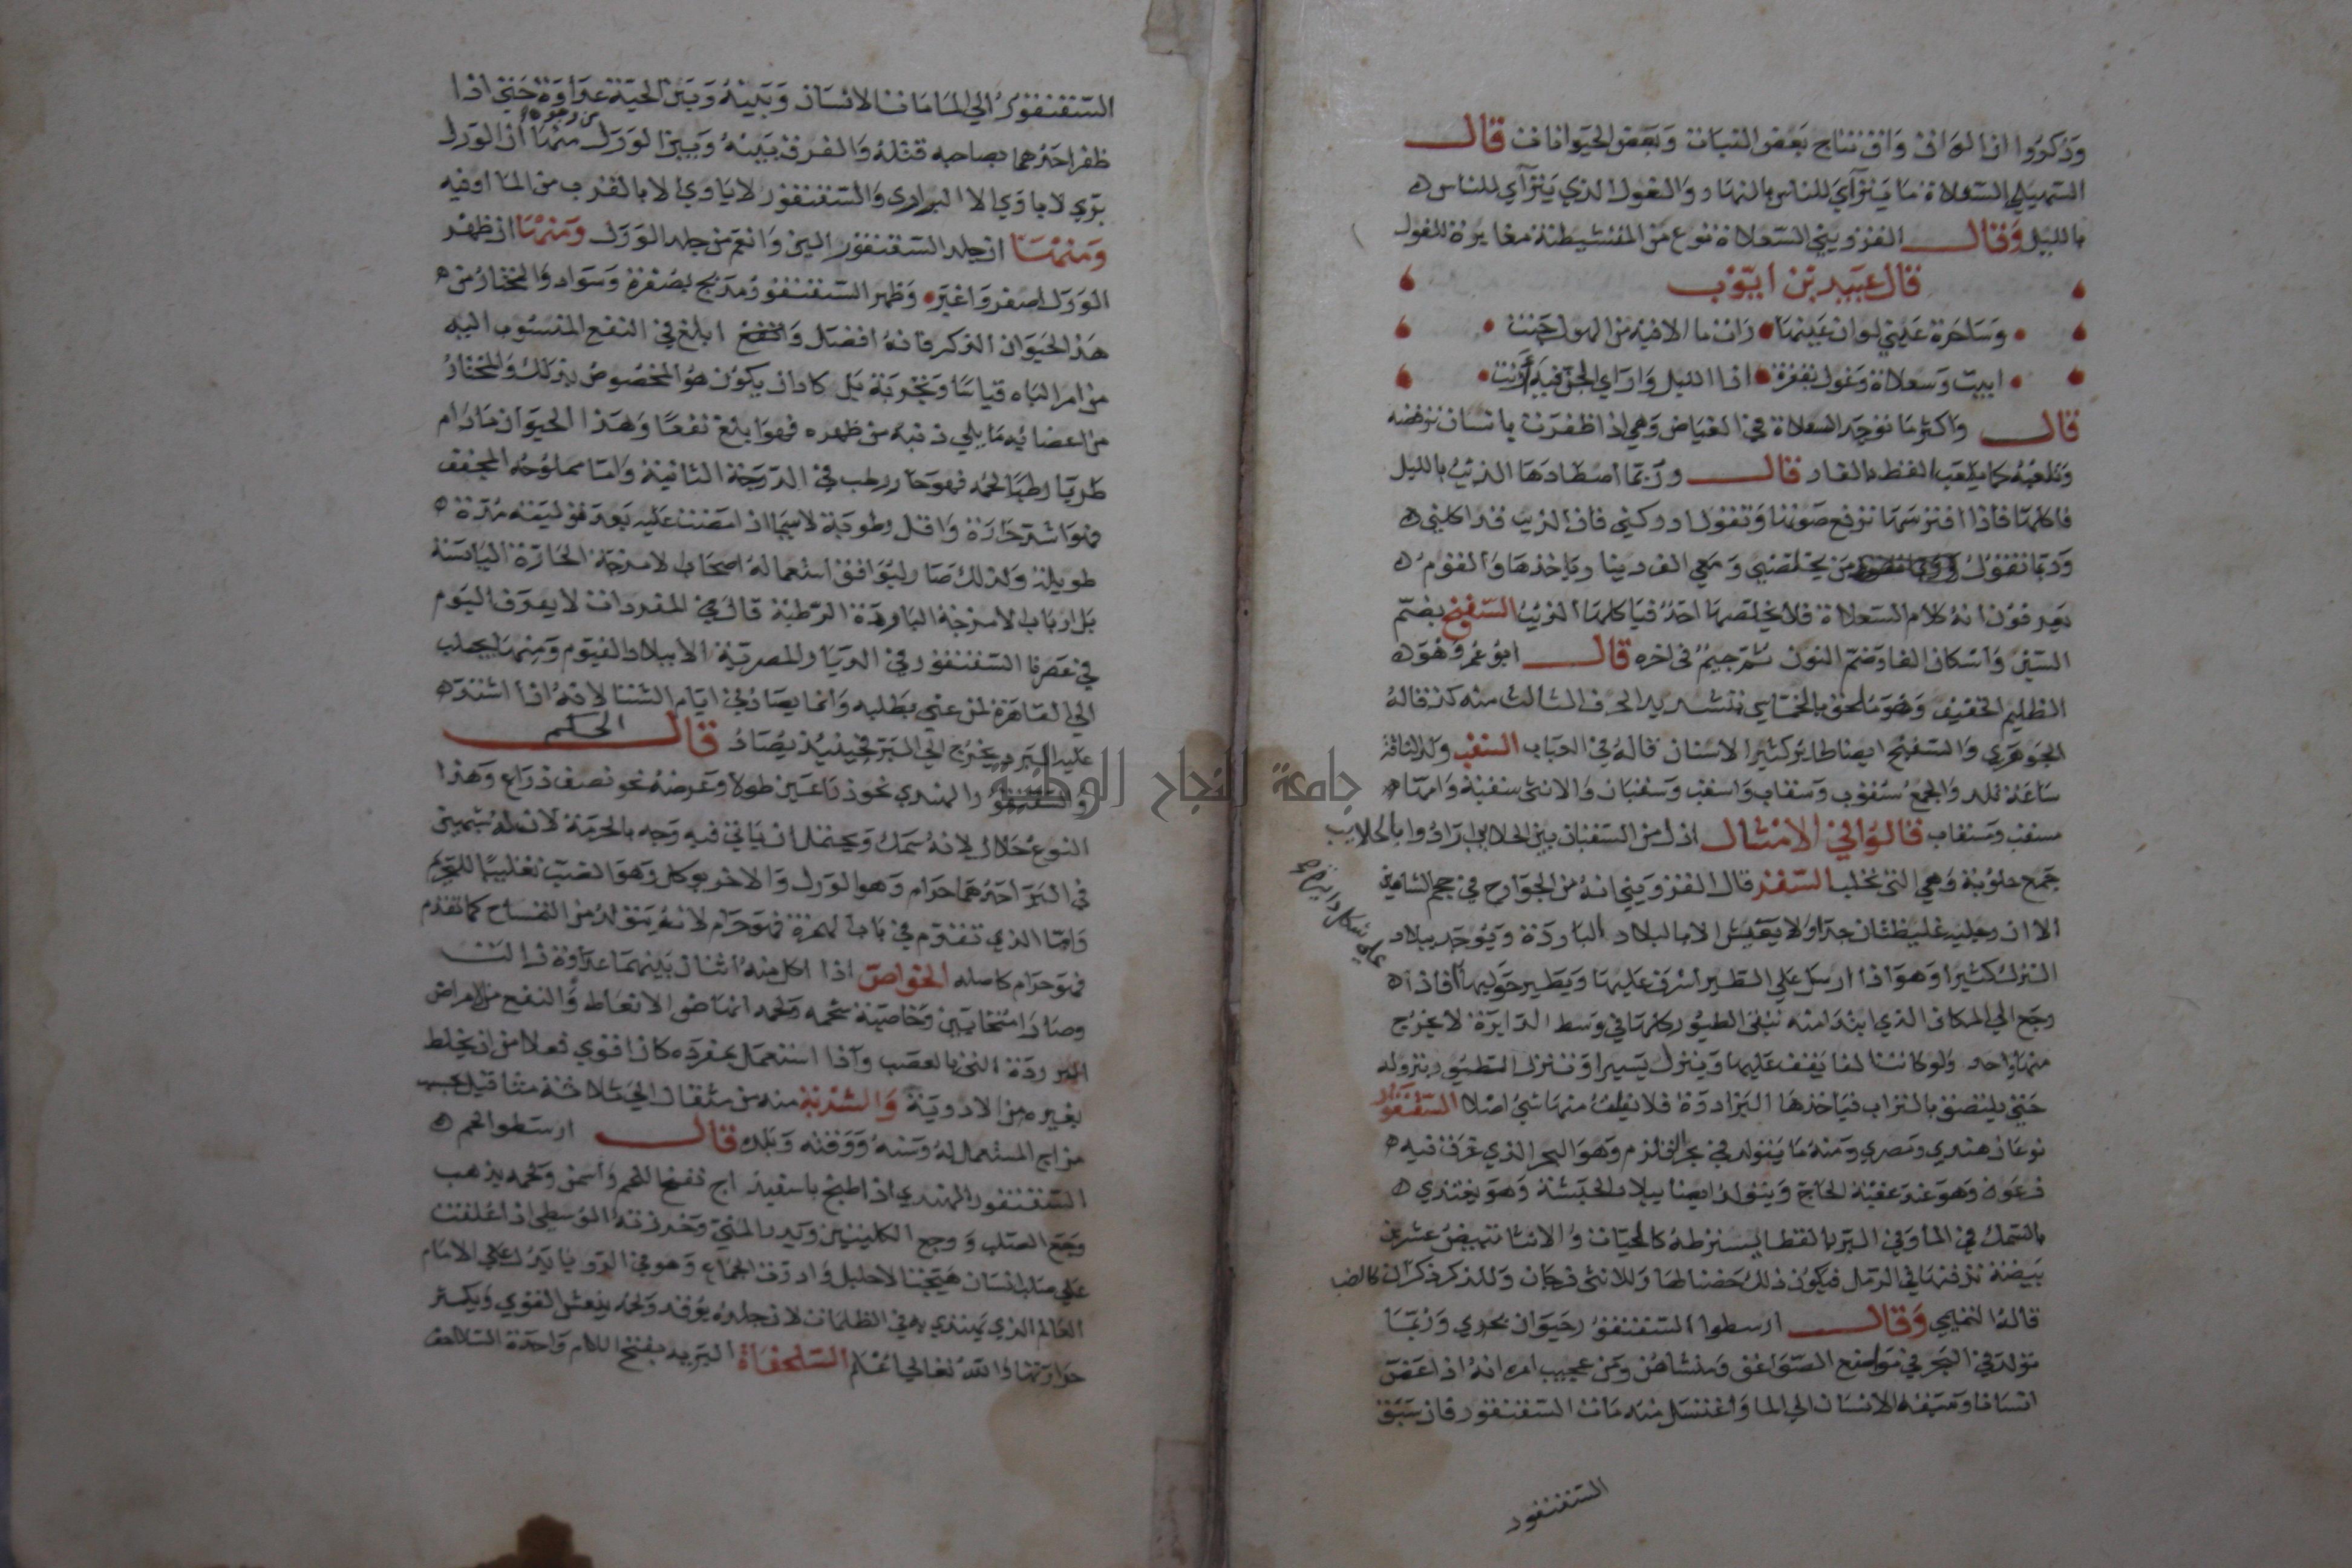 وذكروا ان الوراق وان نتاج بعض النبات وبعض الحيوانات قال
السهيلي السعلاة ما يترآي للناس بالنهار والغول الذي يترآي للناس
بالليل وقال القزويني السعلاة نوع من المتشيطنة مغايرة للغول
قال عبيد بن ايوب
وساحرة عيني لو ان عينها رات ما الاقيه من الهول جنت
ابيت وسعلاة وغول بقفرة اذا الليل وارى الجن فيه أرنت
قال واكثر ما توجد السعلاة في الغياض وهي اذا ظفرت بانسان ترقصه
وتلعبه كما يلعب القط بالفار قال وربما اصطادها الذئب بالليل
فاكلها فاذا افترسها ترفع صوتها وتقول ادركوني فان الذيب قد اكلني
وربما تقول من يخلصني ومعي الف دينار ياخذها والقوم
يعرفون انه كلام السعلاة فلا يخلصها احد فياكلها الذيب السفنج بضم
السين واسكان الفا وضم النون ثم جيم في اخره قال ابو عمرو هو
الظليم الخفيف وهو ملحق بالخماسي بتشديد الحرف الثالث منه كذا قاله
الجوهري والسفنج ايضا طاير كثير الاستنان قاله في العباب السقب ولد الناقة
ساعة تلد والجمع سقوب وسقاب واسقب وسقبان والانثى سقبة وامها
مسقب ومسقاب قالوا في الامثال اذل من السقبان بين الحلايب ارادوا بالحلايب
جمع حلوبة وهي التي تحلب السقر قال القزويني انه من الجوارح في حجم الشاهين
الا ان رجليه غليظتان جدا ولا يعيش الا بالبلاد الباردة ويوجد ببلاد
الترك كثيرا وهو اذا ارسل علي الطير اشرف عليها ويطير حوليها فاذا
رجع الي المكان الذي ابتدا منه تبقى الطيور كلها في وسط الدايرة لا يخرج
منها واحد ولو كانت الفا يقف عليها وينزل يسيرا يسيرا وتنزل الطيور بنزوله
حتى يلتصق بالتراب فياخذها البزادرة فلا يفلت منها شي اصلا السقنقور
نوعان هندي ومصري ومنه ما يتولد في بحر القلزم وهو البحر الذي غرق فيه
فرعون وهو عند عقبة الحاج ويتولد ايضا ببلاد الحبشة وهو يغتذي
بالسمك في الما وفي البر بالقطا يسترطه كالحيات والانثا تبيض عشرين
بيضة تدفنها في الرمل فيكون ذلك حضنا لها وللانثى فرجان وللذكر ذكران كالضب
قاله التميمي وقال ارسطوا السقنقور حيوان بحري وربما
تولد في البحر في مواضع الصواعق ومن عجيب امره انه اذا عض
انسانا وسبقه الانسان الي الما واغتسل منه مات السقنقور وان سبق
السقنقور
السقنقور الي الما مات الانسان وبينه وبين الحية عداوة حتى اذا
ظفر احدهما بصاحبه قتله والفرق بينه وبين الورل من وجوه منها ان الورل
بري لا ياوي الا البراري والسقنقور لا ياوي الا بالقرب من الما او فيه
ومنها ان جلد السقنقور الين وانعم من جلد الورل ومنها ان ظهر
الورل اصفر واغبر وظهر السقنقور مدبج بصفرة وسواد والمختار من
هذا الحيوان الذكر فانه افضل وانفع ابلغ في النفع المنسوب اليه
من امر الباه قياسا وتجربة بل كاد ان يكون هو المخصوص بذلك والمختار
من اعضايه ما يلي ذنبه من ظهره فهو ابلغ نفعا وهذا الحيوان ما دام
طريا رطبا لحمه فهو حار رطب في الدرجة الثانية واما مملوحه المجفف
فهو اشد حرارة واقل رطوبة لاسيما اذا مضت عليه بعد تعليقه مدة
طويلة ولذلك صار لا يوافق استعماله اصحاب الامزجة الحارة اليابسة
بل ارباب الامزجة الباردة الرطبة قال في المفردات لا يعرف اليوم
في عصرنا السقنقور في الديار المصرية الا ببلاد الفيوم ومنها يجلب
الي القاهرة لمن عني بطلبه وانما يصاد في ايام الشتا لانه اذا اشتد
عليه البرد يخرج الي البر فحينيذ يصاد قال الحكيم
والسقنقور الهندي نحو ذراعين طولا وعرضه نحو نصف ذراع وهذا
النوع حلال لانه سمك ويحتمل ان ياتي فيه وجه بالحرمة لان له شبهين
في البر احدهما حرام وهو الورل والاخر يوكل وهو الضب تغليبا للتحريم
واما الذي تقدم في باب الهمزة فهو حرام لانه يتولد من التمساح كما تقدم
فهو حرام كاصله الخواص اذا اكل منه اثنان بينهما عداوة زالت
وصارا متحابين وخاصية شحمه ولحمه انهاض الانعاظ والنفع من الامراض
الباردة التي بالعصب واذا استعمل بمفرده كان اقوي فعلا من ان يخلط
بغيره من الادوية والشربة منه من مثقال الي ثلاثة مثاقيل بحسب
مزاج المستعمل له وسنه ووقته وبلده قال ارسطوا لحم
السقنقور الهندي اذا طبخ باسفيذاج نفخ اللحم واسمن ولحمه يذهب
وجع الصلب ووجع الكليتين ويدر المني وخرزته الوسطى اذا علقت
علي صلب انسان هيجت الاحليل وادرت الجماع وهو في الرويا يدل علي الامام
العالم الذي يهتدي به في الظلمات لان جلده يوقد ولحمه ينعش القوي ويكثر
حرارتها والله تعالي اعلم السلحفاة البرية بفتح اللام واحدة السلاحف
جامعة النجاح الوطنية